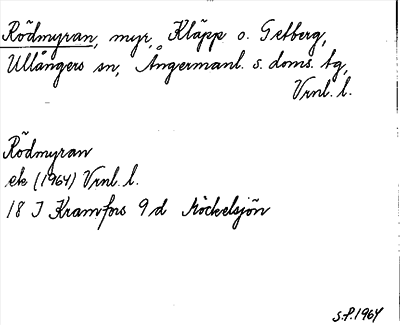 Rödmyran, myr, Kläpp o. Getberg,
Ullångers sn, Ångermanl. s. doms. tg,
Vrnl. l.
Rödmyran
ek (1964) Vrnl. l.
18 J Kramfors 9 d Möckelsjön
S.P. 1964